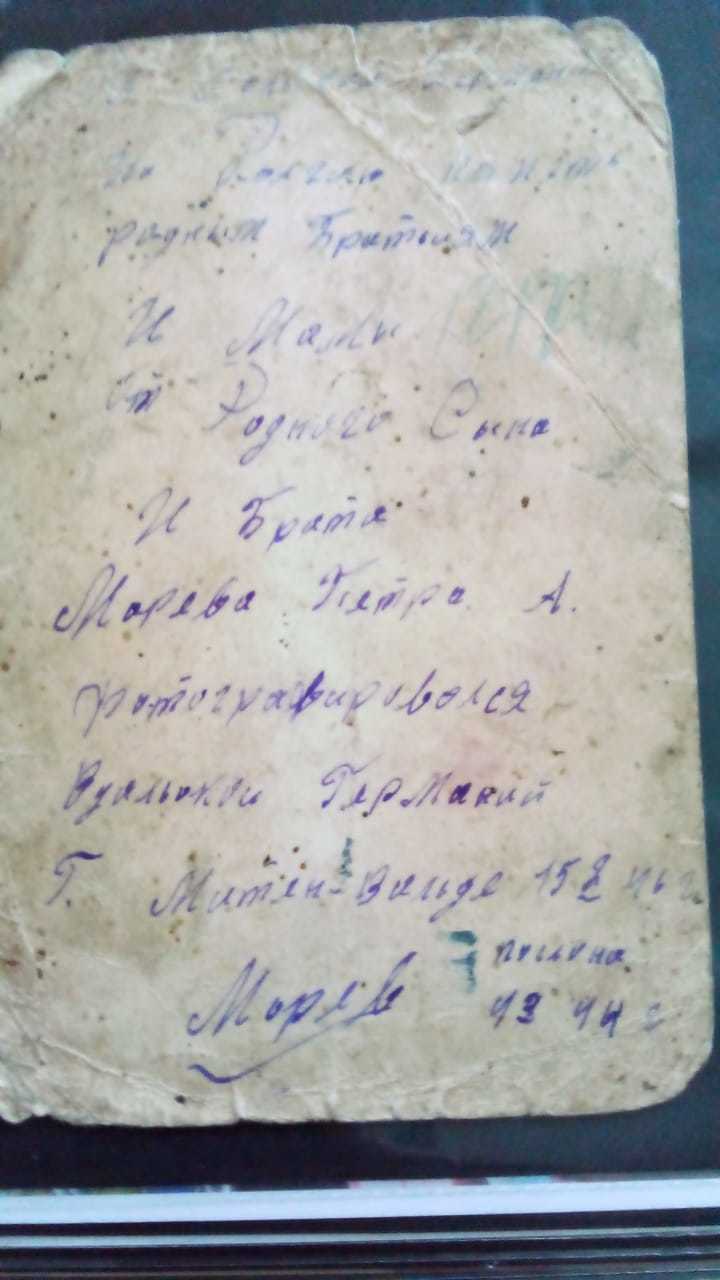 на Долгую память
родным Братьям
И Мами
От Родного Сына
И Брата
Морева Петра А.
фотографировался
Вдалькой Германий
Г. Митен-Вальде 15 X 46 г
Морев